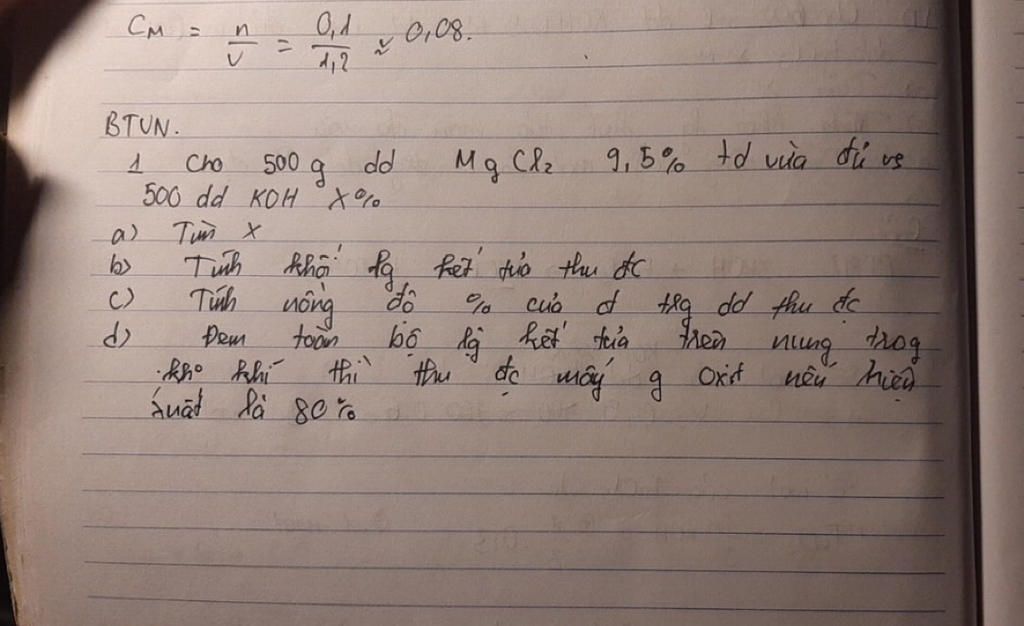 CM = n/V = 0,1/1,2 ≈ 0,08.
BTVN.
1 Cho 500 g dd MgCl2 9,5% td vừa đủ vs
500 dd KOH X%
a) Tìm X
b) Tính khối lg kết tủa thu đc
c) Tính nồng độ % của ct trg dd thu đc
d) Đem toàn bộ lg kết tủa trên nung trog
kho khí thì thu đc mấy g Oxit nếu hiệu
suất là 80%